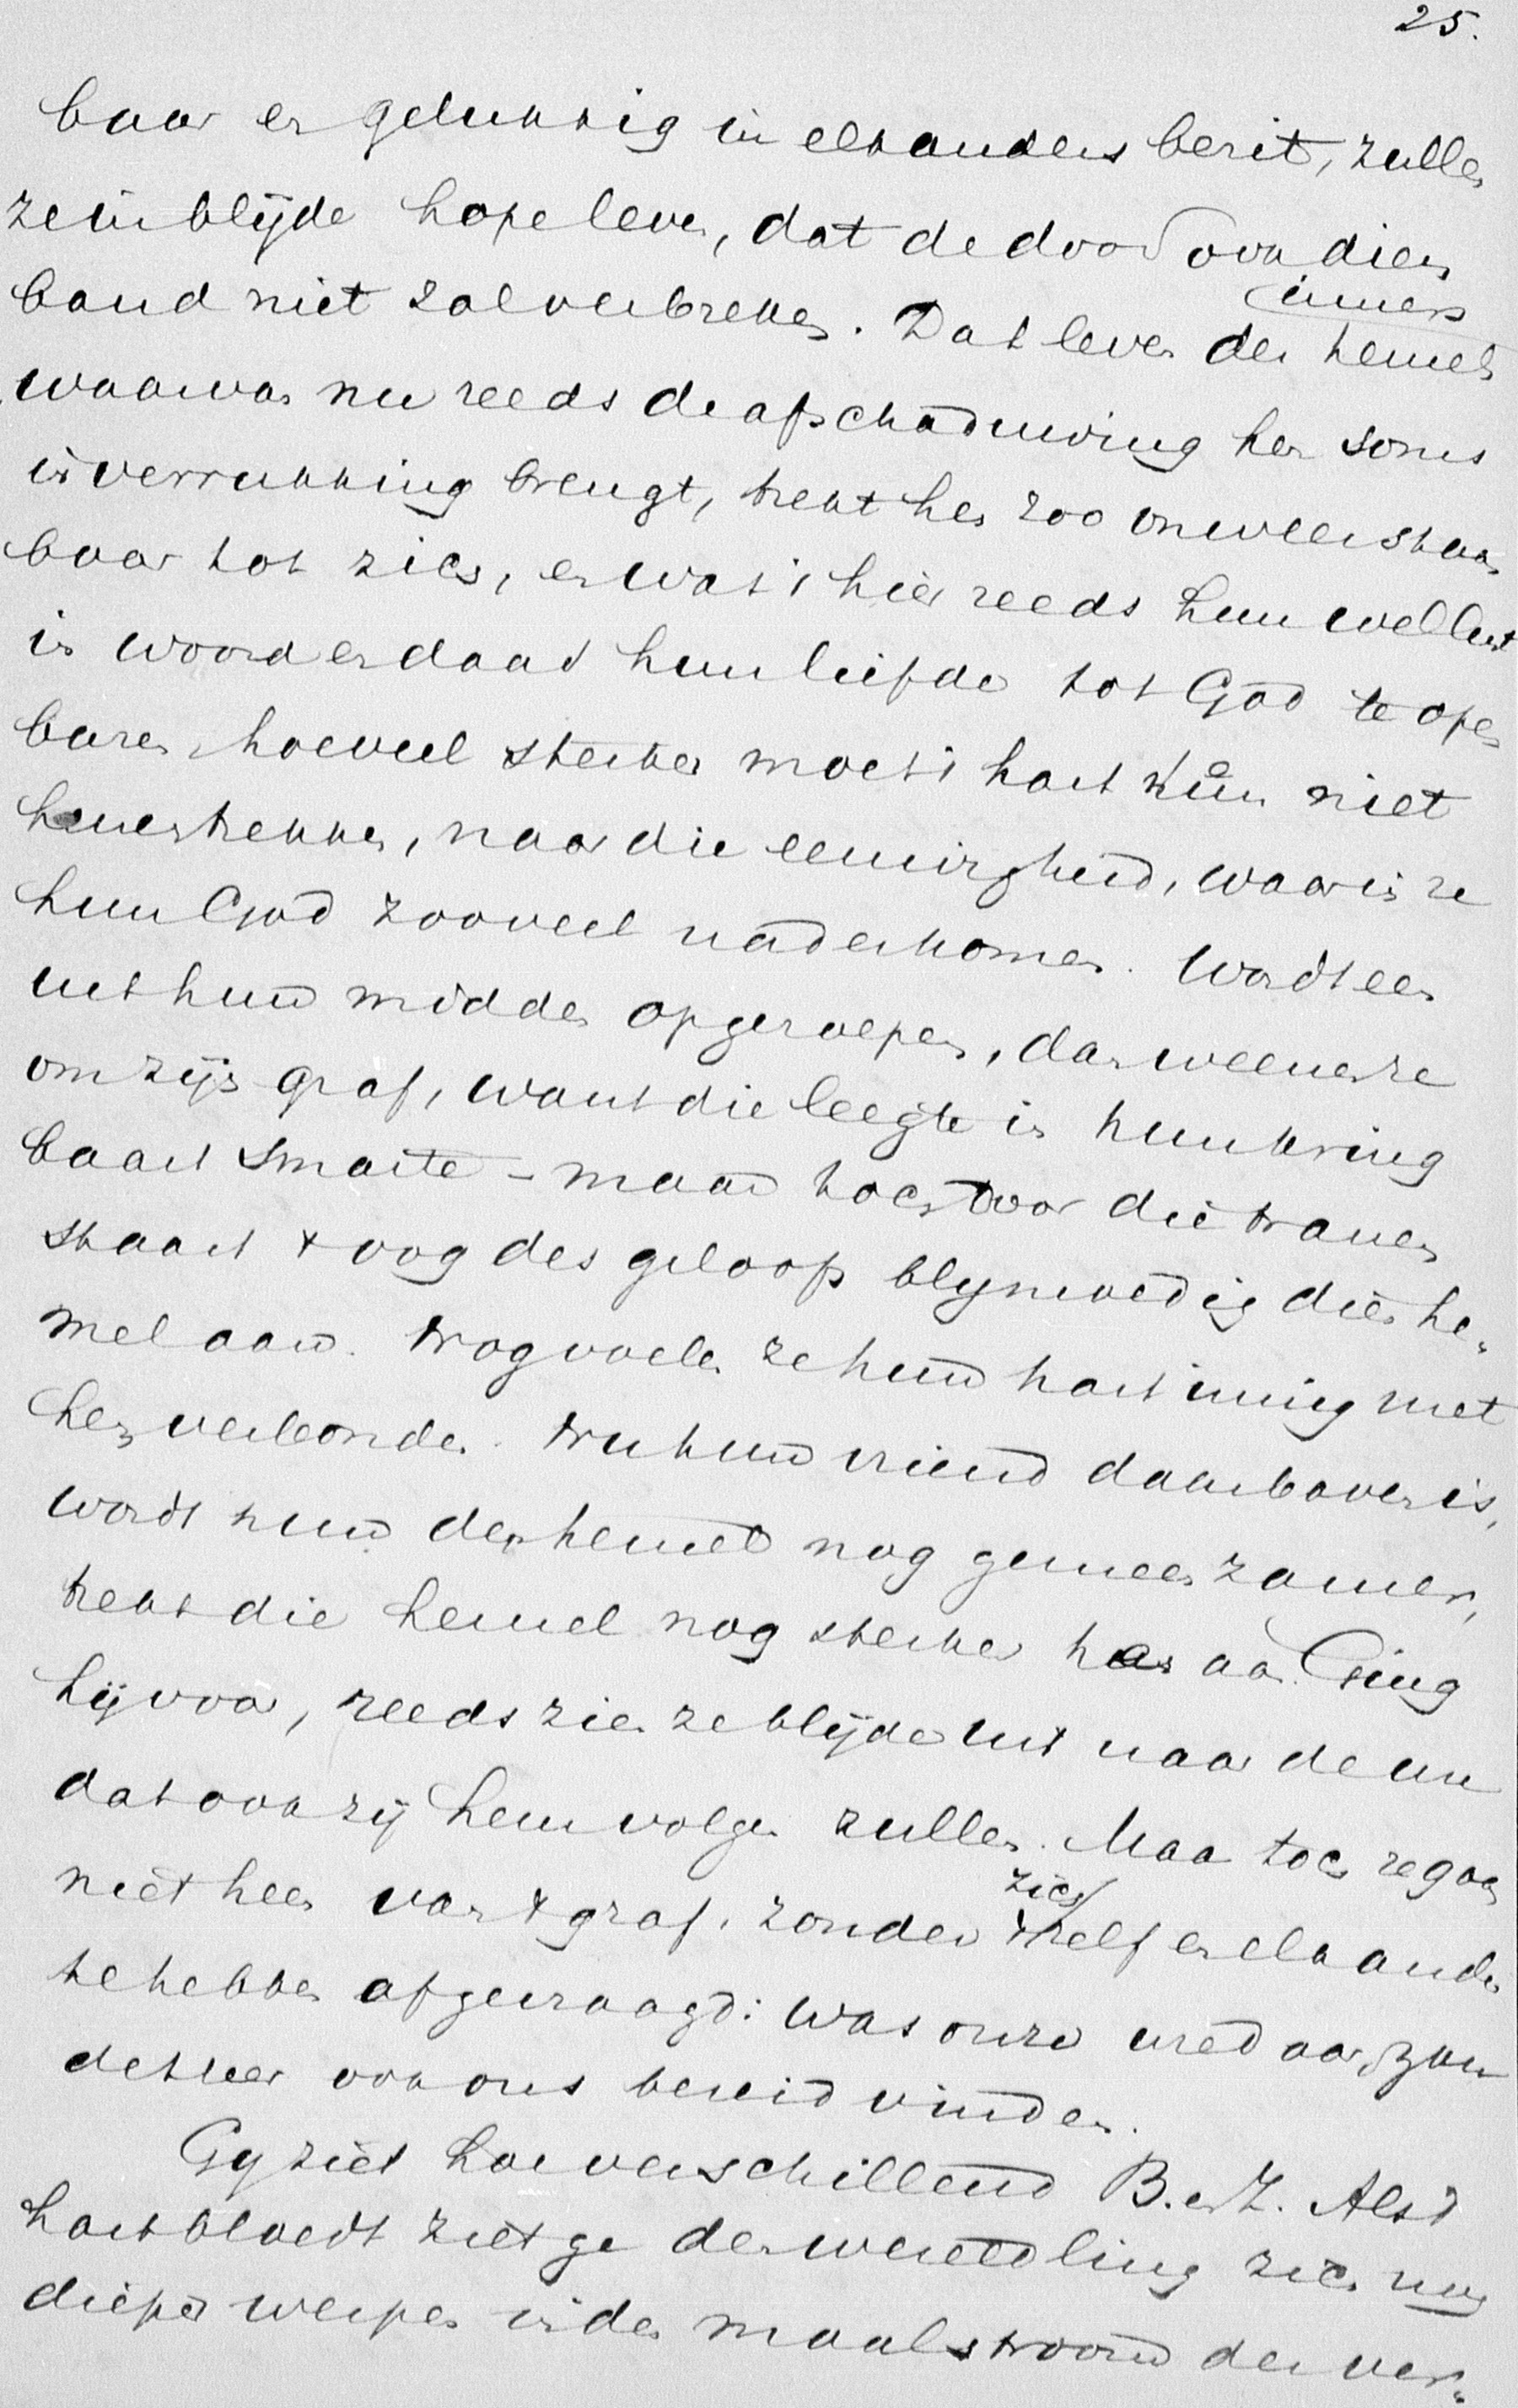 25.
baar en gelukkig in elkanders bezit, zullen
ze in blijde hope leven, dat de dood ook dien
band niet zal verbreken. Dat leven des hemels
immers
waarvan nu reeds de afschaduwing hen soms
in verrukking brengt, trekt hen zoo onweerstaan
baar tot zich, en was 't hier reeds hun wellust
in woord en daad hun liefde tot God te open
baren, hoeveel sterker moet 't hart hun niet
henentrekken, naar die eeuwigheid, waarin ze
hun God zooveel nader komen. Wordt een
uit hun midden opgeroepen, dan weenen ze
om zijn graf, want die leegte in hun kring
baart smarte – maar toch door die tranen
staart 't oog des geloofs blijmoedig dien he-
mel aan. Nog voelen ze hun hart innig met
hem verbonden. Nu hun vriend daarboven is,
wordt hun de hemel nog gemeenzamer,
trekt die hemel nog sterker hen aan. Ging
hij voor, reeds zien ze blijde uit naar de ure
dat ook zij hem volgen zullen. Maar toch ze gaan
niet heen van 't graf, zonder zich
zelf en elkander
te hebben afgevraagd: was onze ure daar, zou
de Heer ook ons bereid vinden.
Gy ziet hoe verschillend B. en Z. Als 't
hart bloedt ziet ge den wereldling zich nog
dieper werpen in den maalstroom der ver-